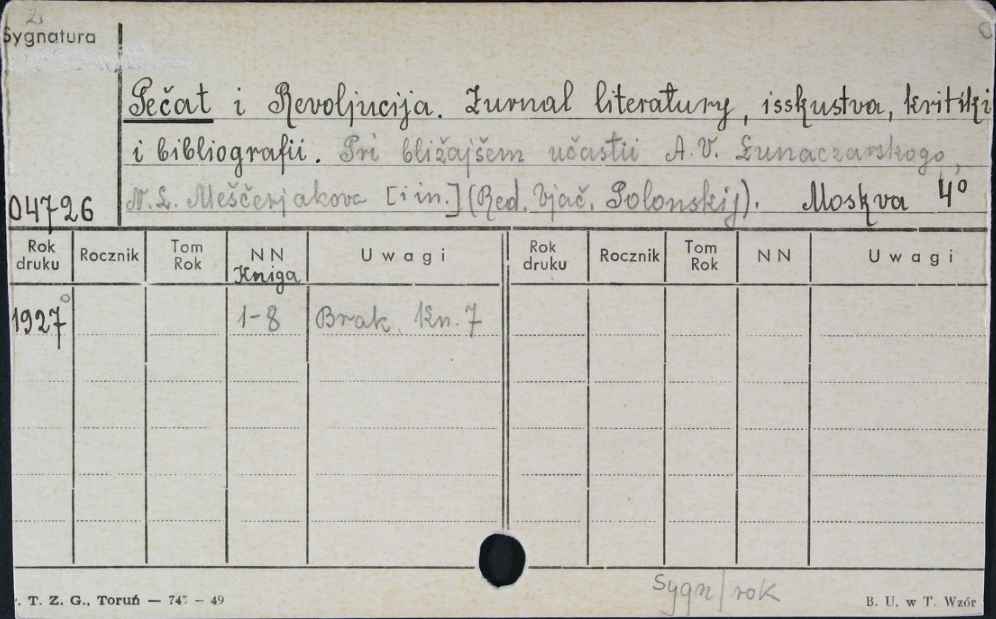 Sygnatura
Pečat i Revoljucija. Žurnal literatury, isskustva, kritiki
i bibliografii. Pri bližajšem učastii A.V. Lunaczarskogo,
04726 N.L. Meščerjakova [i in.] (Red. Vjač. Polonskij). Moskva 4º
Rok druku Rocznik Tom Rok NN Kniga Uwagi Rok druku Rocznik Tom Rok NN Uwagi
1927 1-8 Brak kn. 7
Sygn/rok
T. Z. G., Toruń — 49 B. U. w T. Wzór